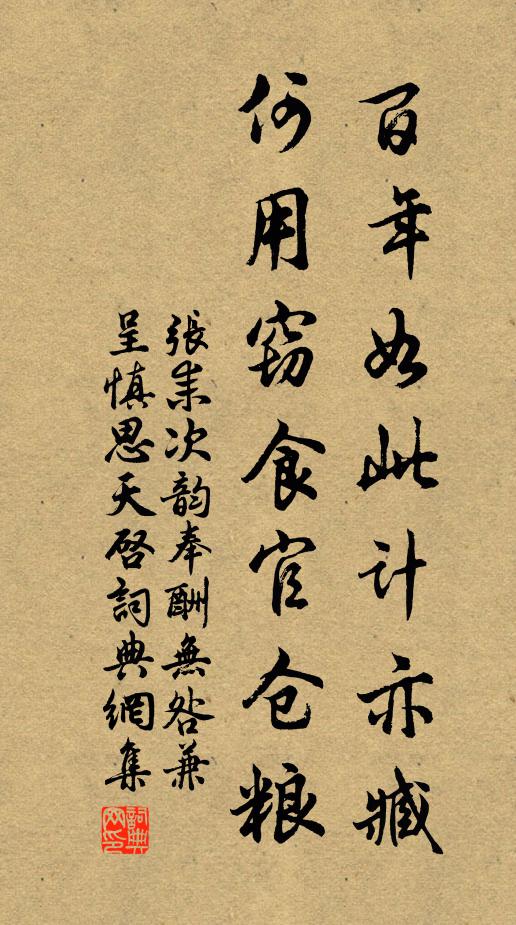 百年如此计亦臧
何用窃食官仓粮
張耒次韵奉酬無咎兼
呈慎思天啓詞典網集
詞典网印